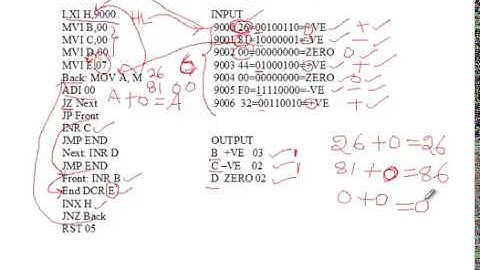 LXI H,9000
MVI B,00
MVI C,00
MVI D,00
MVI E,07
Back: MOV A, M
ADI 00
JZ Next
JP Front
INR C
JMP END
Next: INR D
JMP END
Front: INR B
End DCR E
INX H
JNZ Back
RST 05
HL
26
81 00
A+0=A
INPUT
9000 26=00100110=+VE +
9001 81=10000001=-VE -
9002 00=00000000=ZERO 0
9003 44=01000100=+VE +
9004 00=00000000=ZERO 0
9005 F0=11110000=-VE -
9006 32=00110010=+VE +
OUTPUT
B +VE 03
C -VE 02
D ZERO 02
26+0=26
81+0=86
0+0=0